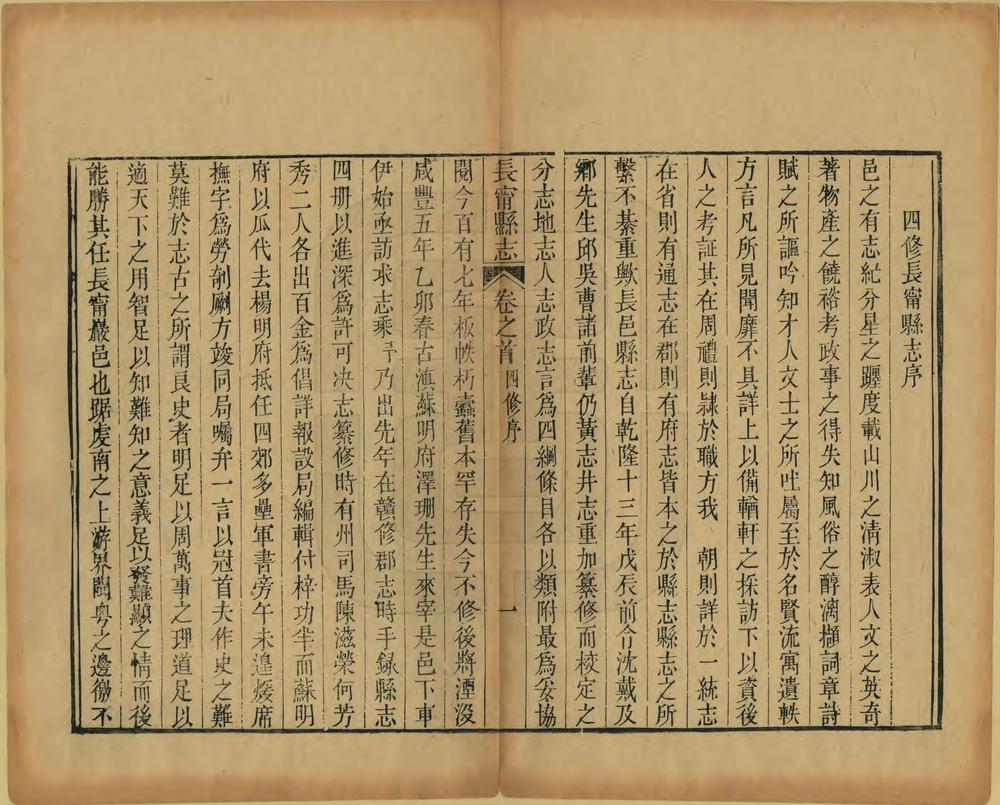 四修長甯縣志序
邑之有志紀分星之躔度載山川之清淑表人文之英奇
著物產之饒裕考政事之得失知風俗之醇漓擷詞章詩
賦之所謳吟知才人文士之所吐屬至於名賢流寓遺軼
方言凡所見聞靡不具詳上以備輶軒之採訪下以資後
人之考証其在周禮則隷於職方我　朝則詳於一統志
在省則有通志在郡則有府志皆本之於縣志縣志之所
繫不綦重歟長邑縣志自乾隆十三年戊辰前令沈戴及
鄉先生邱吳曹諸前輩仍黃志井志重加纂修而校定之
分志地志人志政志言爲四綱條目各以類附最爲妥協
長甯縣志　卷之首　四修序　一
閱今百有七年板帙朽蠹舊本罕存失今不修後將湮沒
咸豐五年乙卯春古滇蘇明府澤珊先生來宰是邑下車
伊始亟訪求志乘予乃出先年在贛修郡志時手錄縣志
四册以進深爲許可决志纂修時有州司馬陳滋榮何芳
秀二人各出百金爲倡詳報設局編輯付梓功半而蘇明
府以瓜代去楊明府抵任四郊多壘軍書旁午未遑煖席
撫字爲勞剞劂方竣同局囑弁一言以冠首夫作史之難
莫難於志古之所謂良史者明足以周萬事之理道足以
適天下之用智足以知難知之意義足以發難顯之情而後
能勝其任長甯巖邑也踞虔南之上游界閩粤之邊徼不